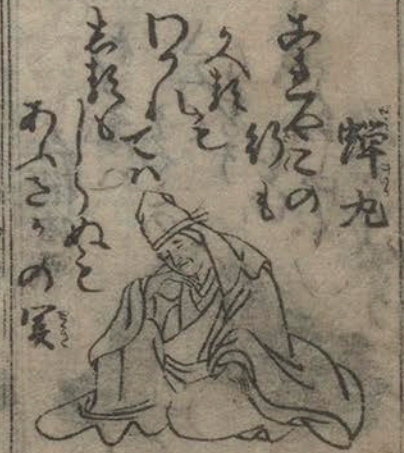 蝉丸
これやこの
行も
かへるも
わかれ
ては
しるも
しらぬも
あふさかの関